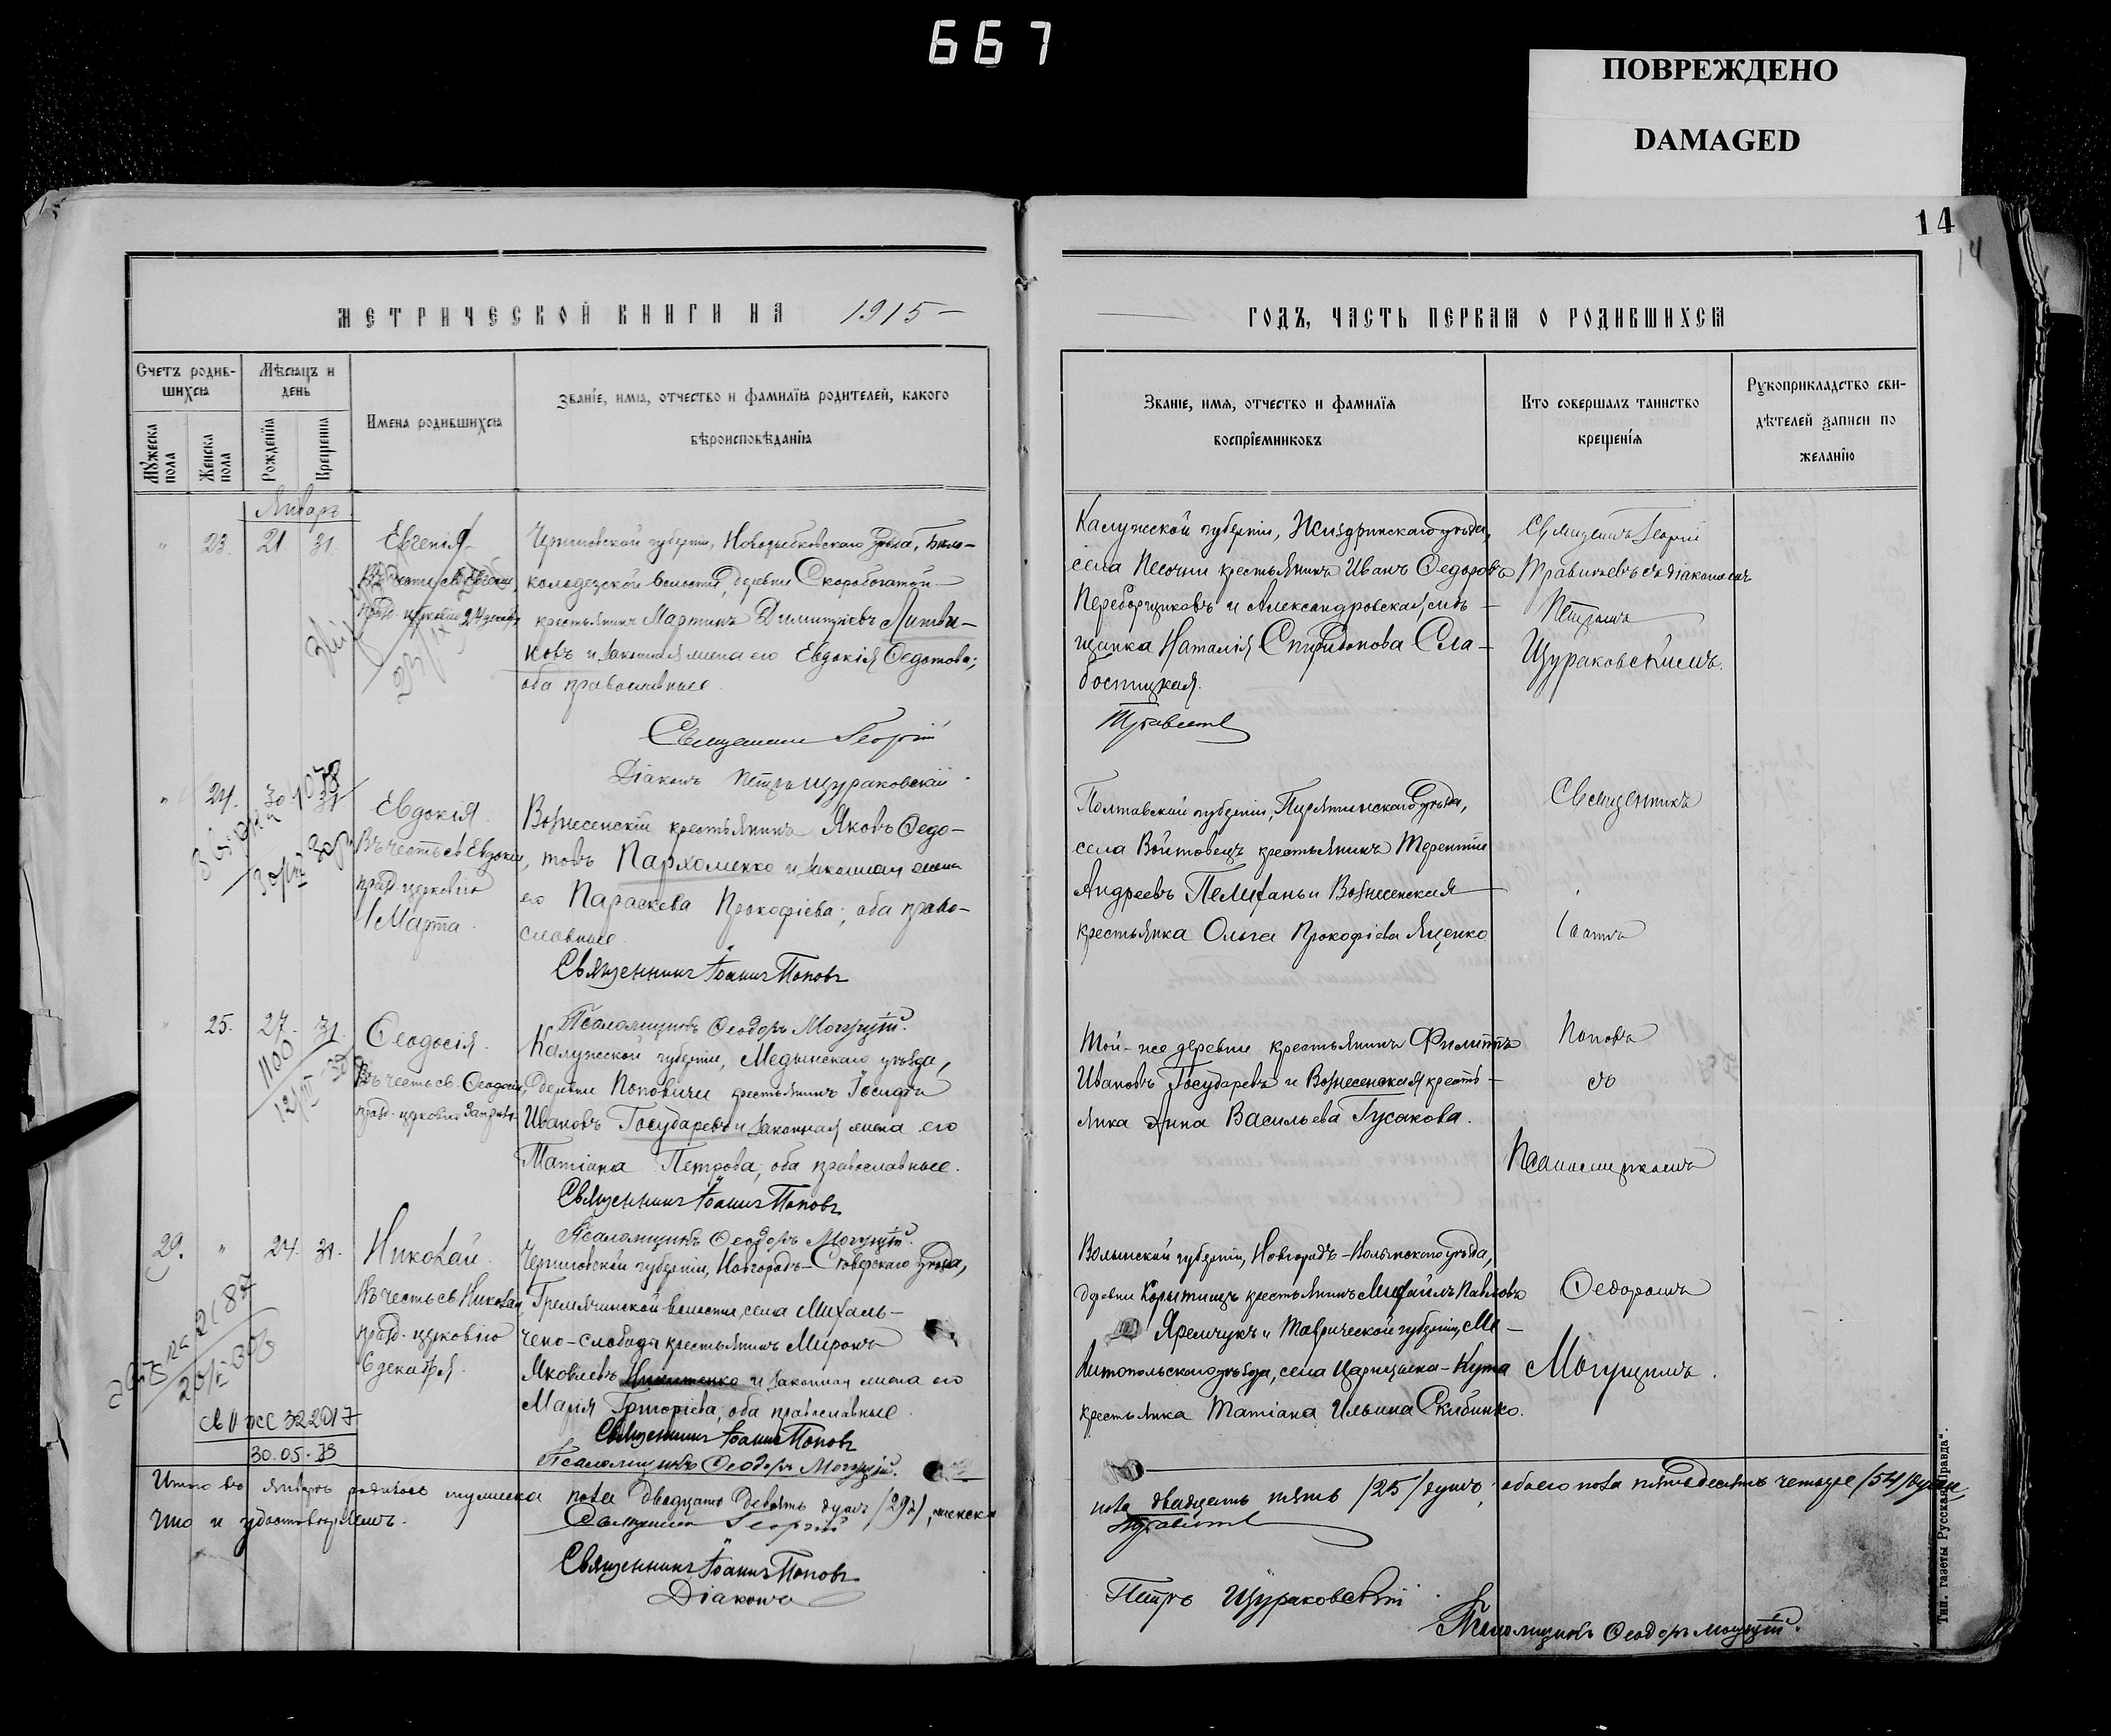 667
ПОВРЕЖДЕНО
DAMAGED
14
14
МЕТРИЧЕСКОЙ КНИГИ НА 1915
ГОДЪ, ЧАСТЬ ПЕРВАЯ О РОДИВШИХСЯ
Счетъ родившихся
Мужеска пола
Женска пола
Мѣсяцъ и день
Рожденія
Крещенія
Имена родившихся
Званіе, имя, отчество и фамилія родителей, какого вѣроисповѣданія
Званіе, имя, отчество и фамилія воспріемниковъ
Кто совершалъ таинство крещенія
Рукоприкладство свидѣтелей записи по желанію
Январь
23. 21. 31.
Евгенія
Въ честь св. Евгеніи,
празд. церковію 24 декабр.
Черниговской губерніи, Новозыбковскаго уѣзда, Бѣло-
колодезской волости, деревни Скоробогатой
крестьянинъ Мартинъ Димитріевъ Литви-
новъ и законная жена его Евдокія Федотова;
оба православные.
Священникъ Георгій
Діаконъ Петръ Щураковскій
Калужской губерніи, Жиздринскаго уѣзда,
села Песочни крестьянинъ Иванъ Федоровъ
Переборщиковъ и Александровская мѣ-
щанка Наталія Спиридонова Сла-
бостицкая.
Священникъ Георгій
съ діакономъ
Петромъ
Щураковскимъ.
24. 30. 31
Евдокія.
Въ честь св. Евдокіи,
празд. церковію
1 Марта.
Вознесенскій крестьянинъ Яковъ Федо-
товъ Пархоменко и законная жена
его Параскева Прокофіева; оба право-
славные.
Священникъ Іоаннъ Поповъ
Псаломщикъ Феодоръ Могущій.
Полтавской губерніи, Пирятинскаго уѣзда,
села Войтовецъ крестьянинъ Терентій
Андреевъ Пелихань и Вознесенская
крестьянка Ольга Прокофіева Яценко.
Священникъ
Іоаннъ
25. 27. 31.
1100
Феодосія.
Въ честь св. Феодосіи,
празд. церковію
Калужской губерніи, Медынскаго уѣзда,
деревни Поповичи крестьянинъ Іосифъ
Ивановъ Государевъ и законная жена его
Татіана Петрова; оба православные.
Священникъ Іоаннъ Поповъ
Псаломщикъ Феодоръ Могущій.
Той-же деревни крестьянинъ Филиппъ
Ивановъ Государевъ и Вознесенская кресть-
янка Анна Васильева Гусакова.
Поповъ
съ
Псаломщикомъ
29. 24. 31.
Николай.
Въ честь св. Николая
празд. церковію
6 декабря.
Черниговской губерніи, Новгородъ-Сѣверскаго уѣзда,
Гремячинской волости, села Михаль-
чено-слобода крестьянинъ Миронъ
Яковлевъ и законная жена его
Марія Григоріева, оба православные.
Священникъ Іоаннъ Поповъ
Псаломщикъ Феодоръ Могущій.
Волынской губерніи, Новгородъ-Волынскаго уѣзда,
деревни Корытищъ крестьянинъ Михаилъ Павловъ
Яремчукъ и Таврической губерніи, Ме-
литопольскаго уѣзда, села Царицына-Кута
крестьянка Татіана Ильина Скибинко.
Федоромъ
Могущимъ.
30.05.73
Итого въ январѣ родилось мужеска пола двадцать девять душъ /29/, женска
пола двадцать пять /25/ душъ; обоего пола пятьдесятъ четыре /54/ души,
что и удостовѣряемъ.
Священникъ Георгій
Священникъ Іоаннъ Поповъ
Діаконъ
Петръ Щураковскій
Псаломщикъ Феодоръ Могущій.
Тип. газеты „Русская Правда“.